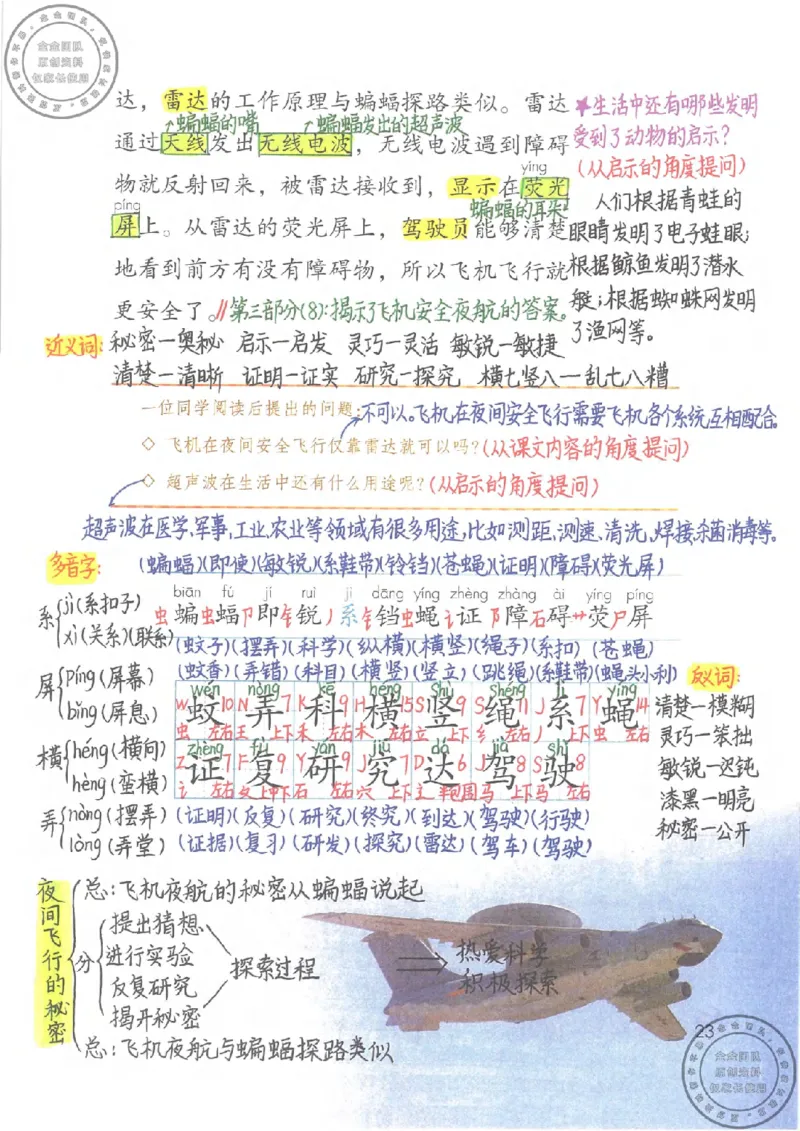 达，雷达的工作原理与蝙蝠探路类似。雷达
↗蝙蝠的嘴 ↗蝙蝠发出的超声波
通过天线发出无线电波，无线电波遇到障碍
yíng
物就反射回来，被雷达接收到，显示在荧光
píng 蝙蝠的耳朵
屏上。从雷达的荧光屏上，驾驶员能够清楚
地看到前方有没有障碍物，所以飞机飞行就
更安全了。//第三部分(8):揭示了飞机安全夜航的答案。
★生活中还有哪些发明
受到了动物的启示?
(从启示的角度提问)
人们根据青蛙的
眼睛发明了电子蛙眼;
根据鲸鱼发明了潜水
艇;根据蜘蛛网发明
了渔网等。
近义词:秘密—奥秘 启示—启发 灵巧—灵活 敏锐—敏捷
清楚—清晰 证明—证实 研究—探究 横七竖八—乱七八糟
一位同学阅读后提出的问题:不可以。飞机在夜间安全飞行需要飞机各个系统互相配合。
◇ 飞机在夜间安全飞行仅靠雷达就可以吗?(从课文内容的角度提问)
◇ 超声波在生活中还有什么用途呢?(从启示的角度提问)
超声波在医学、军事、工业、农业等领域有很多用途,比如测距、测速、清洗、焊接、杀菌消毒等。
多音字:
系 jì(系扣子)
xì(关系)(联系)
屏 píng(屏幕)
bǐng(屏息)
横 héng(横向)
hèng(蛮横)
弄 nòng(摆弄)
lòng(弄堂)
(蝙蝠)(即使)(敏锐)(系鞋带)(铃铛)(苍蝇)(证明)(障碍)(荧光屏)
biān fú jí ruì jì dāng yíng zhèng zhàng ài yíng píng
虫蝙虫蝠卩即钅锐丿系钅铛虫蝇讠证阝障石碍艹荧尸屏
(蚊子)(摆弄)(科学)(纵横)(横竖)(绳子)(系扣)(苍蝇)
(蚊香)(弄错)(科目)(横竖)(竖立)(跳绳)(系鞋带)(蝇头小利)
wén nòng kē héng shù shéng jì yíng
W蚊10 N弄7 K科9 H横15 S竖9 S绳11 J系7 Y蝇14
虫 左右 王 上下 禾 左右 木 左右 立 上下 纟 左右 丿 上下 虫 左右
zhèng fù yán jiū dá jià shǐ
Z证7 F复9 Y研9 J究7 D达6 J驾8 S驶8
讠 左右 夂 上中下 石 左右 穴 上下 辶 半包围 马 上下 马 左右
(证明)(反复)(研究)(终究)(到达)(驾驶)(行驶)
(证据)(复习)(研发)(探究)(雷达)(驾车)(驾驶)
反义词:
清楚—模糊
灵巧—笨拙
敏锐—迟钝
漆黑—明亮
秘密—公开
夜间飞行的秘密
总:飞机夜航的秘密从蝙蝠说起
分
提出猜想
进行实验
反复研究
揭开秘密
探索过程
热爱科学
积极探索
总:飞机夜航与蝙蝠探路类似
23